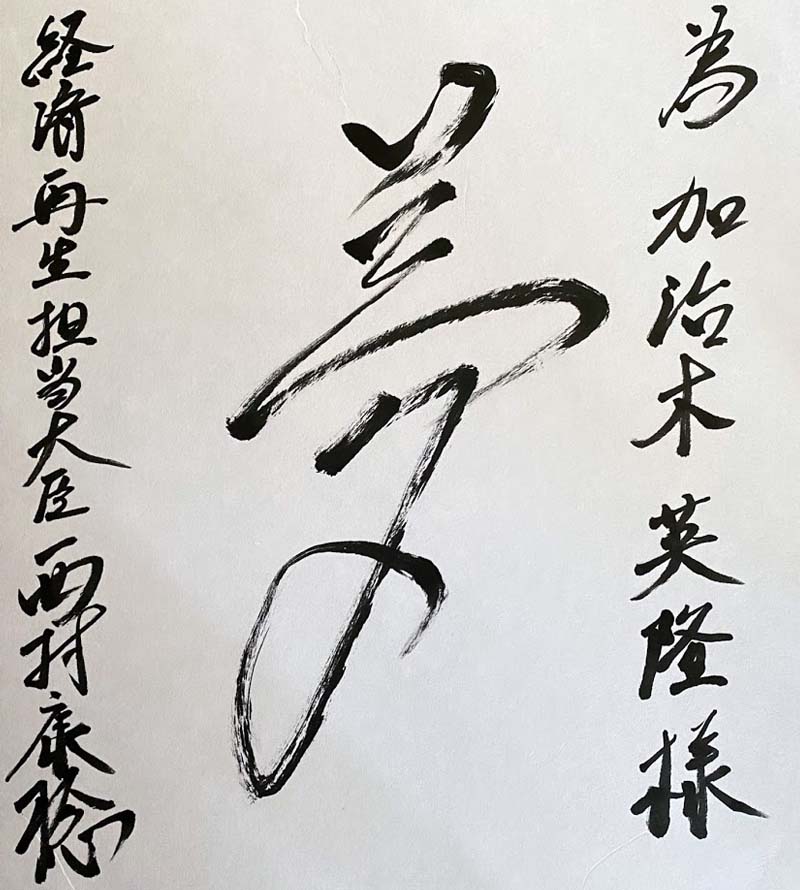 為 加治木 英隆様
夢
経済再生担当大臣 西村康稔